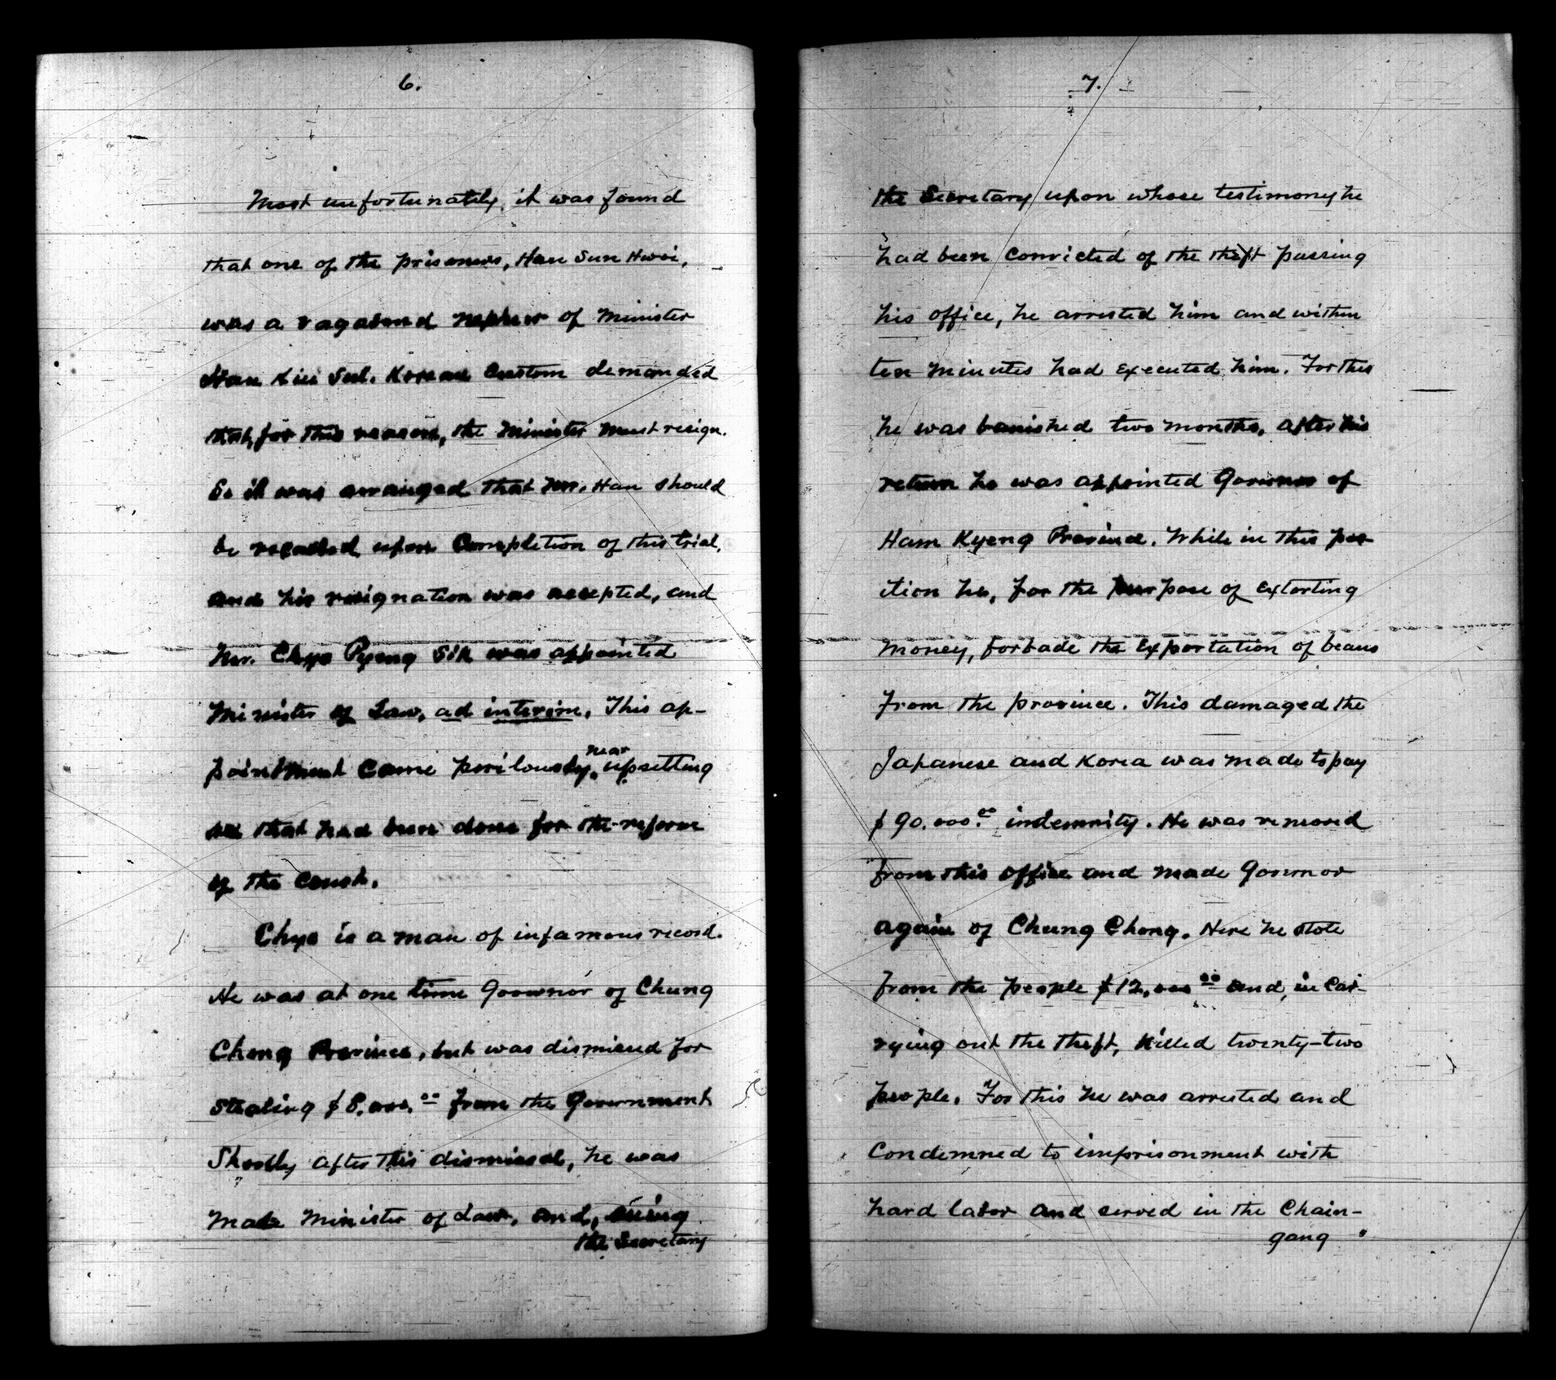 6.
Most unfortunately, it was found
that one of the prisoners, Han Sun Hwei,
was a vagabond nephew of Minister
Han Kiu Sul. Korean Custom demanded
that, for this reason, the Minister must resign.
So it was arranged that Mr. Han should
be  upon Completion of this trial,
and his resignation was accepted, and
Mr. Chyo Pyeng Sik was appointed
Minister of Law, ad interim. This ap-
pointment Came perilously near upsetting
all that had been done for the reform
of the Court.
Chyo is a man of infamous record.
He was at one time Governor of Chung
Chong Province, but was dismissed for
Stealing $8,000.00 from the Government
Shortly after this dismissal, he was
Made Minister of Law, and, seeing
the Secretary
7.
the Secretary upon whose testimony he
had been Convicted of the theft passing
his office, he arrested him and within
ten minutes had executed him. For this
he was banished two months. After his
return he was appointed Governor of
Ham Kyeng Province. While in this pos-
ition he, for the purpose of extorting
money, forbade the exportation of beans
from the province. This damaged the
Japanese and Korea was made to pay
$90.000.00 indemnity. He was removed
from this office and made Governor
again of Chung Chong. Here he stole
from the people $12,000.00 and, in Car-
rying out the theft, Killed twenty-two
people. For this he was arrested and
Condemned to imprisonment with
hard labor and served in the Chain-
gang